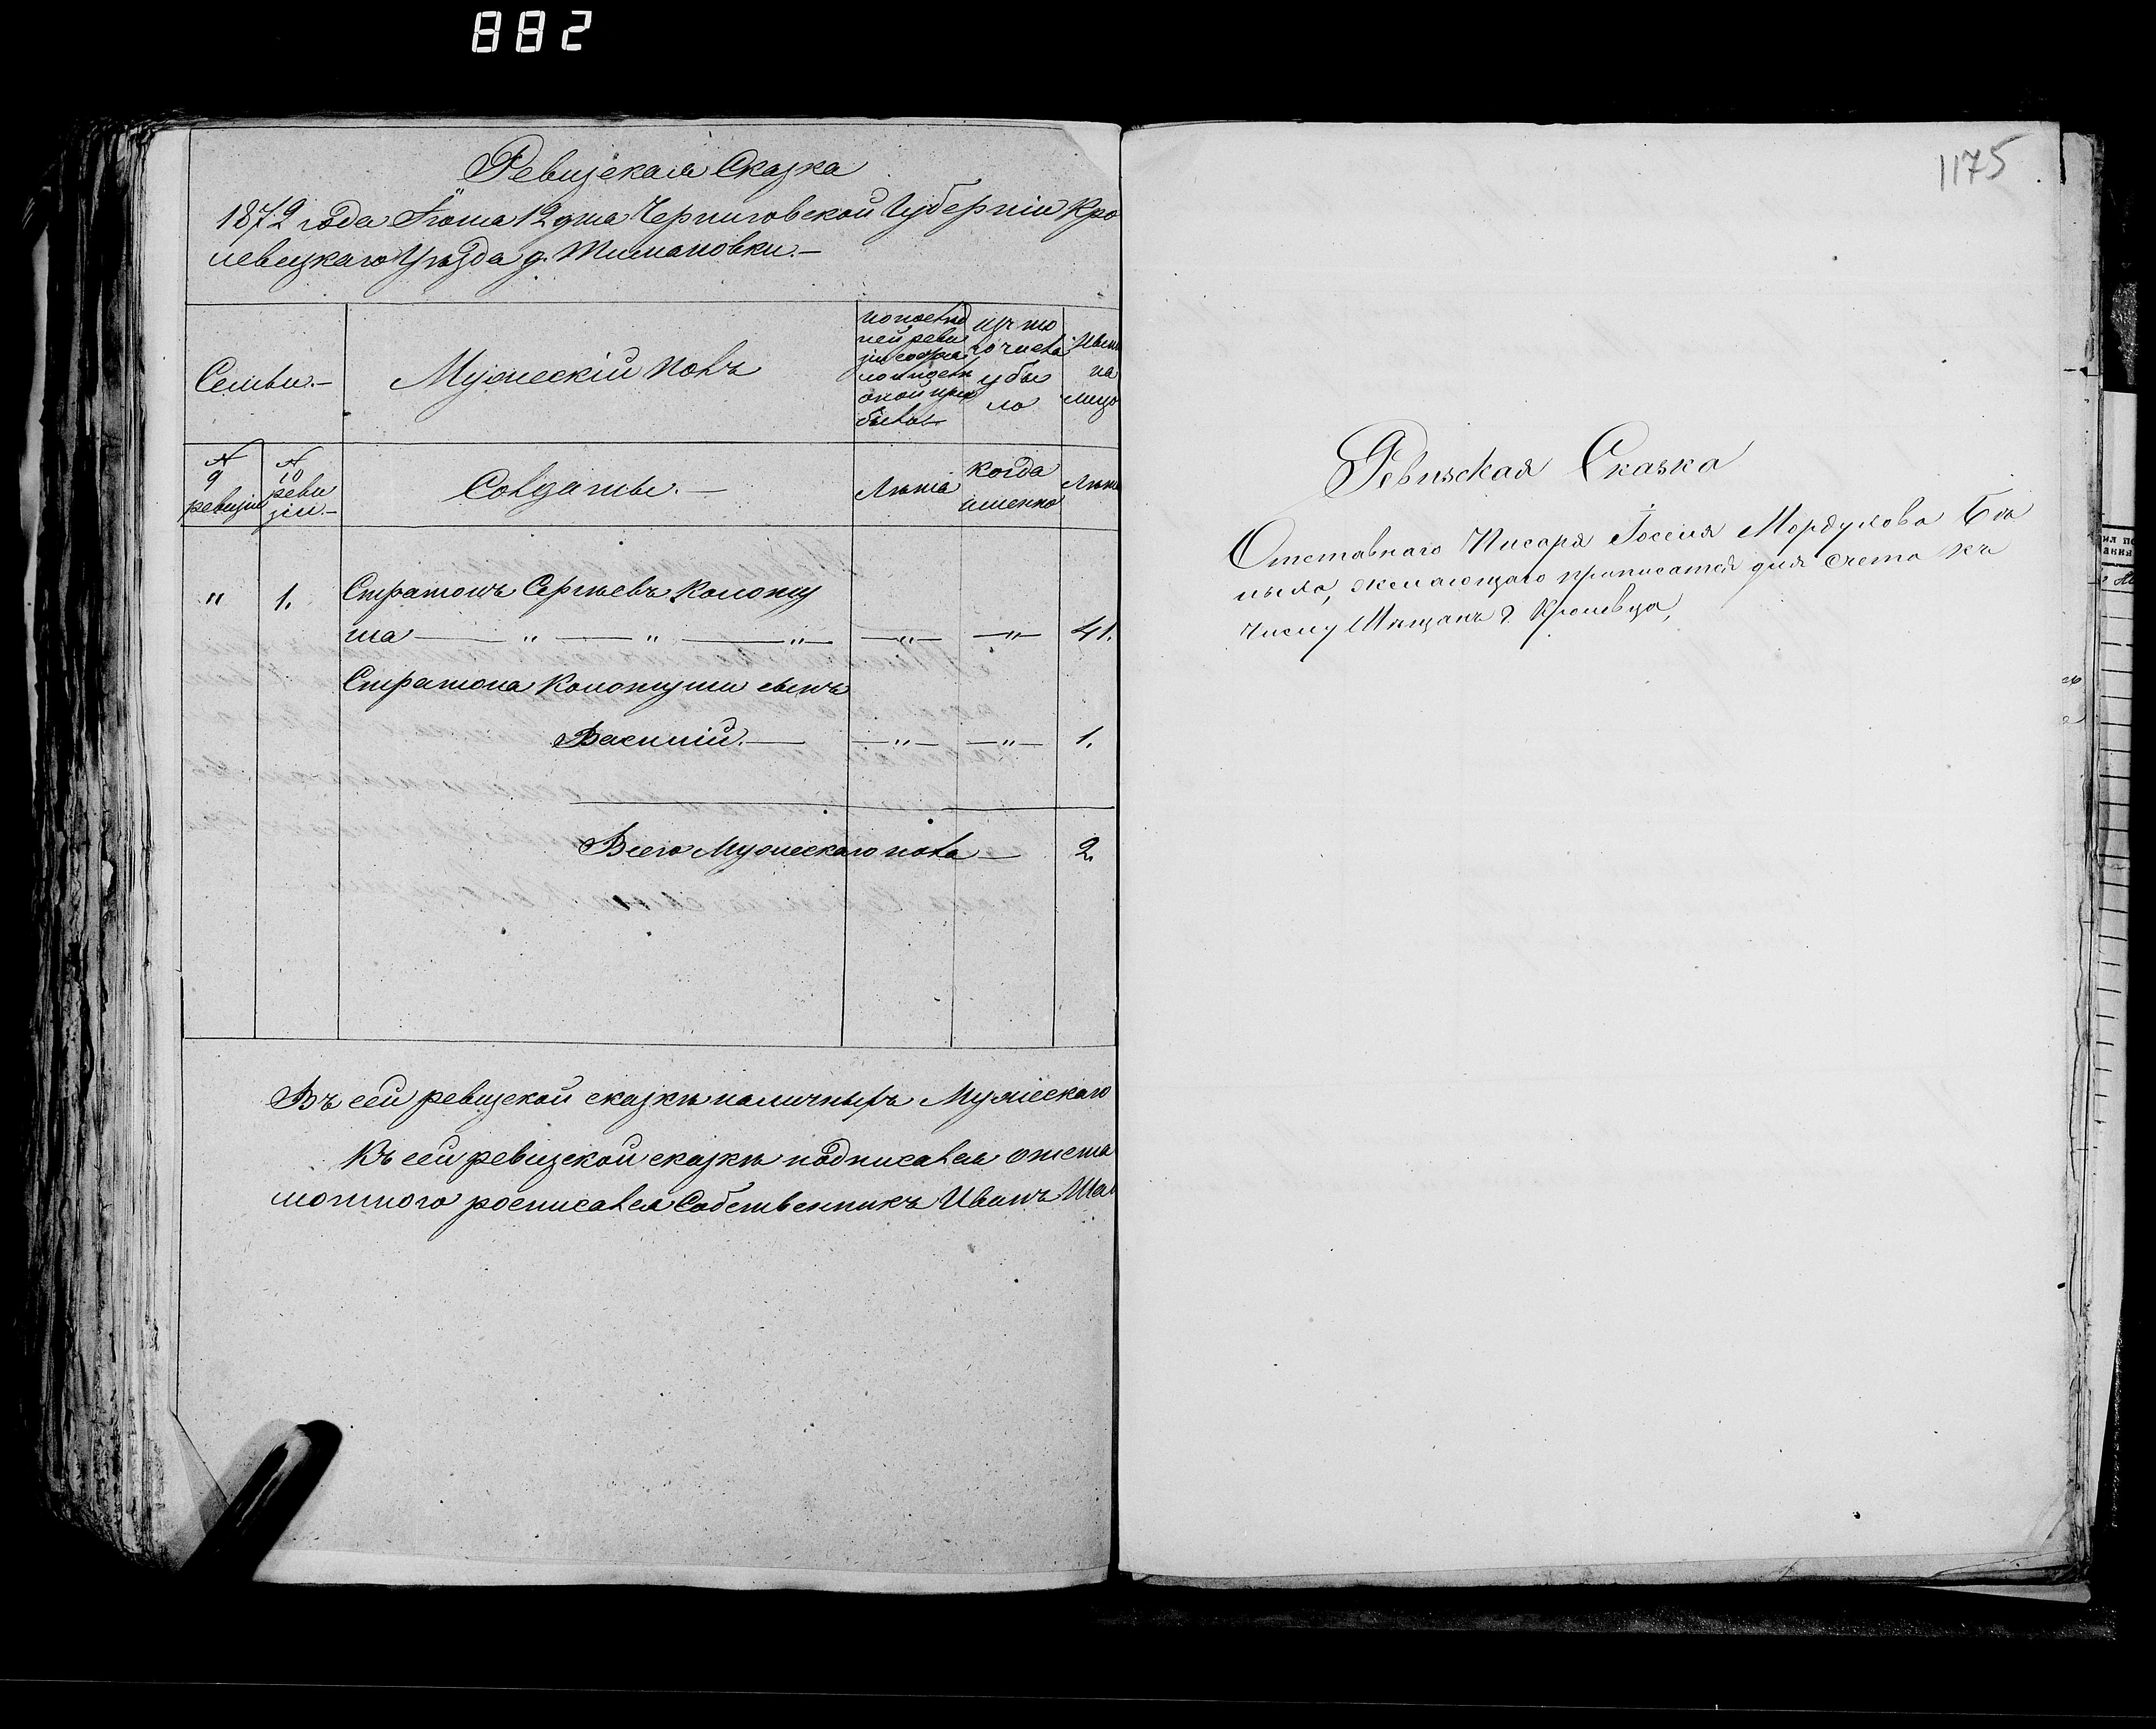 882
Ревизская Сказка
1872 года Іюня 12 дня Черниговской Губерніи Кро
левецкаго Уѣзда д.
Семьи.—
Мужескій полъ
по послѣд
ней реви
зіи состоя
ло и послѣ
оной при
было
изъ то
го числа
убы
ло
Нынѣ
на
лицо
№ 9 ревизіи
№ 10 реви зіи.—
Солдаты.—
Лѣта
когда
именно
Лѣта
" 1. Стратонъ Сергѣевъ Колоту
ша — " — " — " — — " — — " — 41.
Стратона Колотуши сынъ
Василій.— — " — — " — 1.
Всего Мужескаго пола — 2.
Въ сей ревизской сказкѣ наличныхъ Мужескаго
Къ сей ревизской сказкѣ подписался
росписался Собственникъ Иванъ
1175
Ревизская Сказка
Отставнаго Писаря Іоселя Мордухова
желающаго приписатся для счета къ
числу Мѣщанъ г. Кролевца,